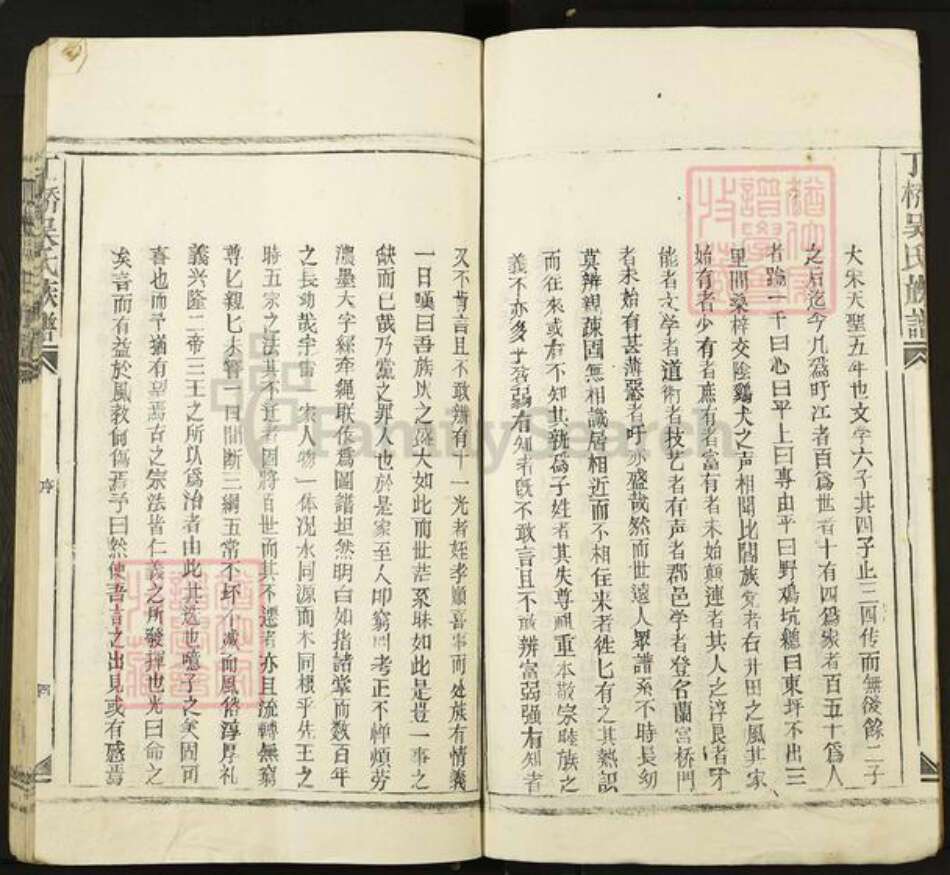 丁桥吴氏族譜
大宋天聖五年也文学六子其四子止三四传而無後餘二子
之后迄今凡爲盱江者百爲世者十有四爲家者百五十爲人
者踰一千曰心曰平上曰專由平曰野鸡坑總曰東坪不出三
里間桑梓交陰鷄犬之声相聞比閭族党者右井田之風其家
始有者少有者庶有者富有者未始顛連者其人之淳良者才
能者文学者道術者技艺者有声者郡邑学者登名蘭宫桥門
者未始有甚薄惡者吁亦盛哉然而世遠人眾譜系不時長幼
莫辨親疎固無相識居相近而不相往来者徃匕有之其熟識
而往来或有不知其孰爲子姓者其失尊祖重本敬宗睦族之
義不亦多乎吾弱有知者旣不敢言且不敢辨富弱强有知者
又不肯言且不敢辨有十一光者姪孝順喜事而处族有情義
一日嘆曰吾族以之盛大如此而世茫系昧如此是豈一事之
缺而已哉乃黨之罪人也於是家至人叩窮問考正不憚煩劳
濃墨大字經牽绳联作爲圖譜坦然明白如指諸掌而数百年
之長幼哉宇宙一家人物一体况水同源而木同根乎先王之
時五宗之法其不迁者固將百世而其不遷者亦且流轉無窮
尊匕親匕未嘗一日間断三綱五常不坏不滅而風俗淳厚礼
義兴隆二帝三王之所以爲治者由此其选也噫子之矣固可
喜也而予猶有望焉古之宗法皆仁義之所發揮也光曰命之
矣言而有益於風教何傷焉予曰然使吾言之出見或有感焉
丁桥吴氏族譜
序
四
FamilySearch